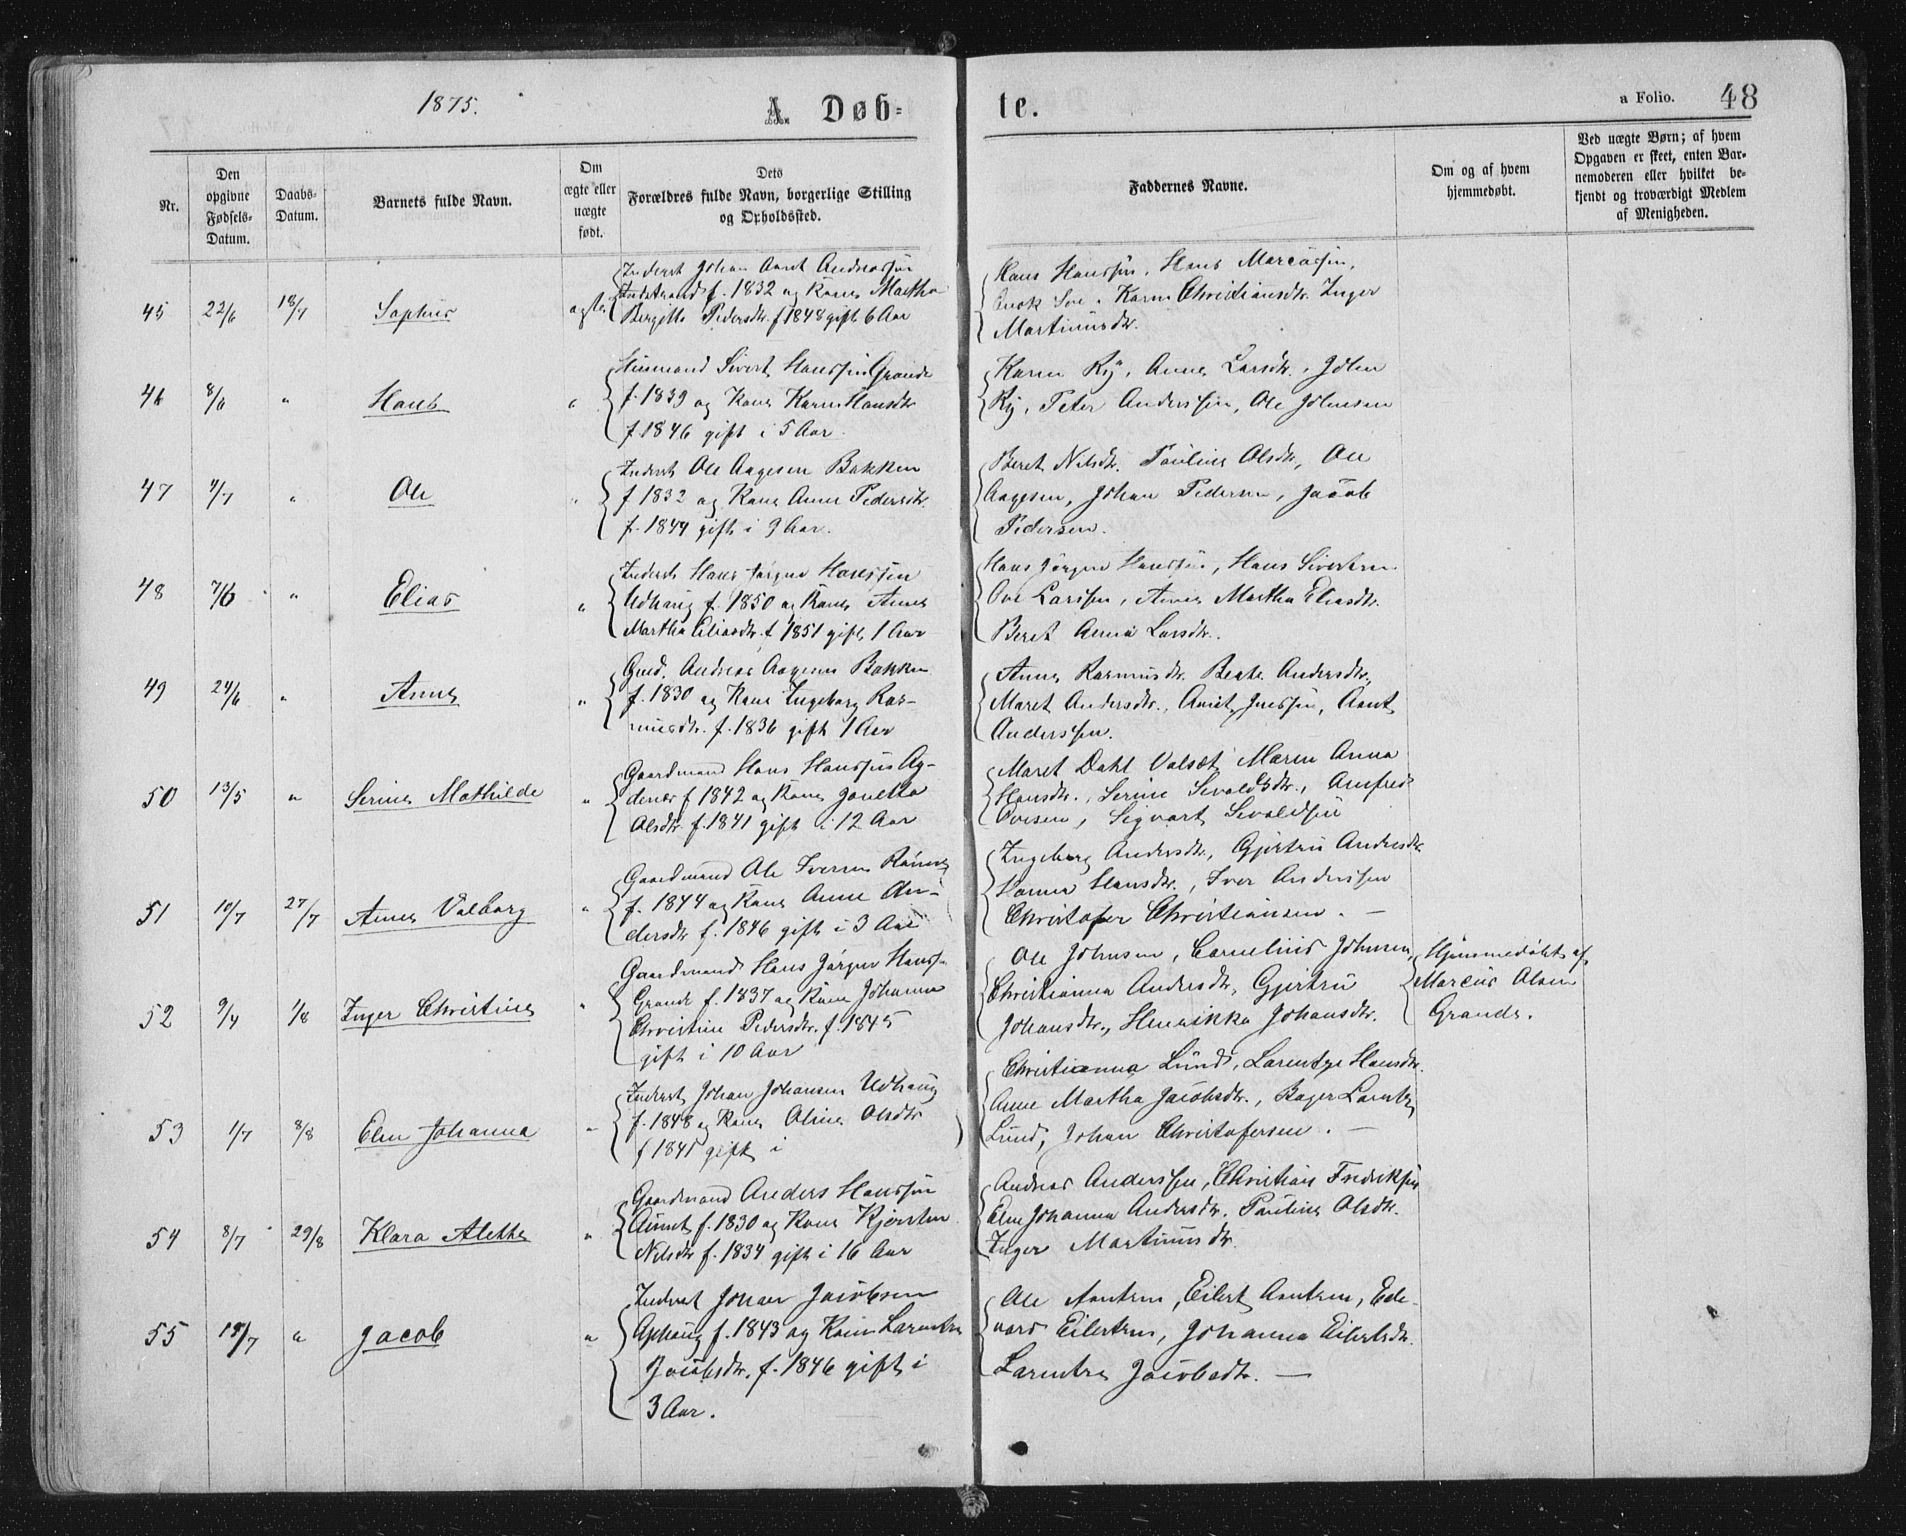 1875.
A. Døb-
te.
a Folio. 48
Nr.
Den opgivne Fødsels-Datum.
Daabs-Datum.
Barnets fulde Navn.
Om ægte eller uægte født.
Dets Forældres fulde Navn, borgerlige Stilling og Opholdssted.
Faddernes Navne.
Om og af hvem hjemmedøbt.
Ved uægte Børn; af hvem Opgaven er skeet, enten Barnemoderen eller hvilket bekjendt og troværdigt Medlem af Menigheden.
45 22/6 18/7 Sophus ægte
Inderst Johan Arnt Andreassen
f. 1832 og Kone Martha
Bergitte Pedersdtr. f 1848 gift 6 Aar
Hans Hanssen, Hans Marcussen,
Karen Christiansdtr. Inger
Martinusdtr.
46 8/6 " Hans "
Husmand Sivert Hanssen Grande
f. 1839 og Kone Karen Hansdtr
f. 1846 gift i 5 Aar.
Karen Ry, Anne Larsdtr., Johan
Ry, Peter Anderssen, Ole Johnsen
47 4/7 " Ole "
Inderst Ole Aagesen Bakken
f 1832 og Kone Anne Pedersdtr.
f. 1844 gift i 9 Aar.
Beret Nilsdtr. Pauline Olsdtr, Ole
Aagesen, Johan Pedersen, Jacob
Pedersen.
48 7/6 " Elias "
Inderst Hans Jørgen Hanssen
Udhaug f. 1850 og Kone Anne
Martha Eliasdtr. f 1851 gift 1 Aar
Hans Jørgen Hanssen, Hans Sivertsen
Ove Larssen, Anne Martha Eliasdtr.
Beret Anna Larsdtr.
49 24/6 " Anne "
Gmd. Andreas Aagesen Bakken
f. 1830 og Kone Ingeborg Ras-
musdtr. f. 1836 gift 1 Aar
Anne Rasmusdtr. Beate Andersdtr.,
Maret Andersdtr., Jenssen, Arnt
Anderssen.
50 13/5 " Serine Mathilde "
Gaardmand Hans Hanssen Ag-
denes f 1842 og Kone Jonetta
Olsdtr. f. 1841 gift i 12 Aar
Maret Dahl Valsæt, Maren Anna
Hansdtr., Serine Sevaldsdtr., Arnfred
Ovesen, Sigvart Sevaldsen
51 10/7 27/7 Anne Valborg "
Gaardmand Ole Iversen
f. 1844 og Kone Anne An-
dersdtr f. 1846 gift i 3 Aar
Ingeborg Andersdtr, Gjertru Andersdtr.
Hanna Hansdtr., Iver Anderssen
Christofer Christiansen. —
52 9/4 1/8 Inger Christine "
Gaardmand Hans Jørgen Hanss.
Grande f. 1837 og Kone Johanna
Christine Pedersdtr. f. 1845
gift i 10 Aar
Ole Johnsen, Cornelius Johnsen,
Christianna Andersdtr, Gjertru
Johansdtr., Henrikka Johansdtr.
Hjemmedøbt af
Marcus Olsen
Grande.
53 1/7 8/8 Elen Johanna "
Inderst Johan Johansen Udhaug
f. 1848 og Kone Oline Olsdtr
f 1845 gift i
Christianna Lund, Larentze Hansdtr.
Anne Martha Jacobsdtr., Bager
Lund, Johan Christofersen. —
54 8/7 29/8 Klara Alette "
Gaardmand Anders Hanssen
f. 1830 og Kone Kjersten
Nilsdtr f. 1834 gift i 16 Aar
Andreas Anderssen, Christian Fredrikssen
Elen Johanna Andersdtr. Pauline Olsdtr.
Inger Martinusdtr.
55 15/7 " Jacob "
Inderst Johan Jacobsen
Ophaug f. 1843 og Kone Larentze
Jacobsdtr. f. 1846 gift i
3 Aar.
Ole Arntsen, Eilert Arntsen, Ed-
vard Eilertsen, Johanna Eilertsdtr.
Larentze Jacobsdtr. —